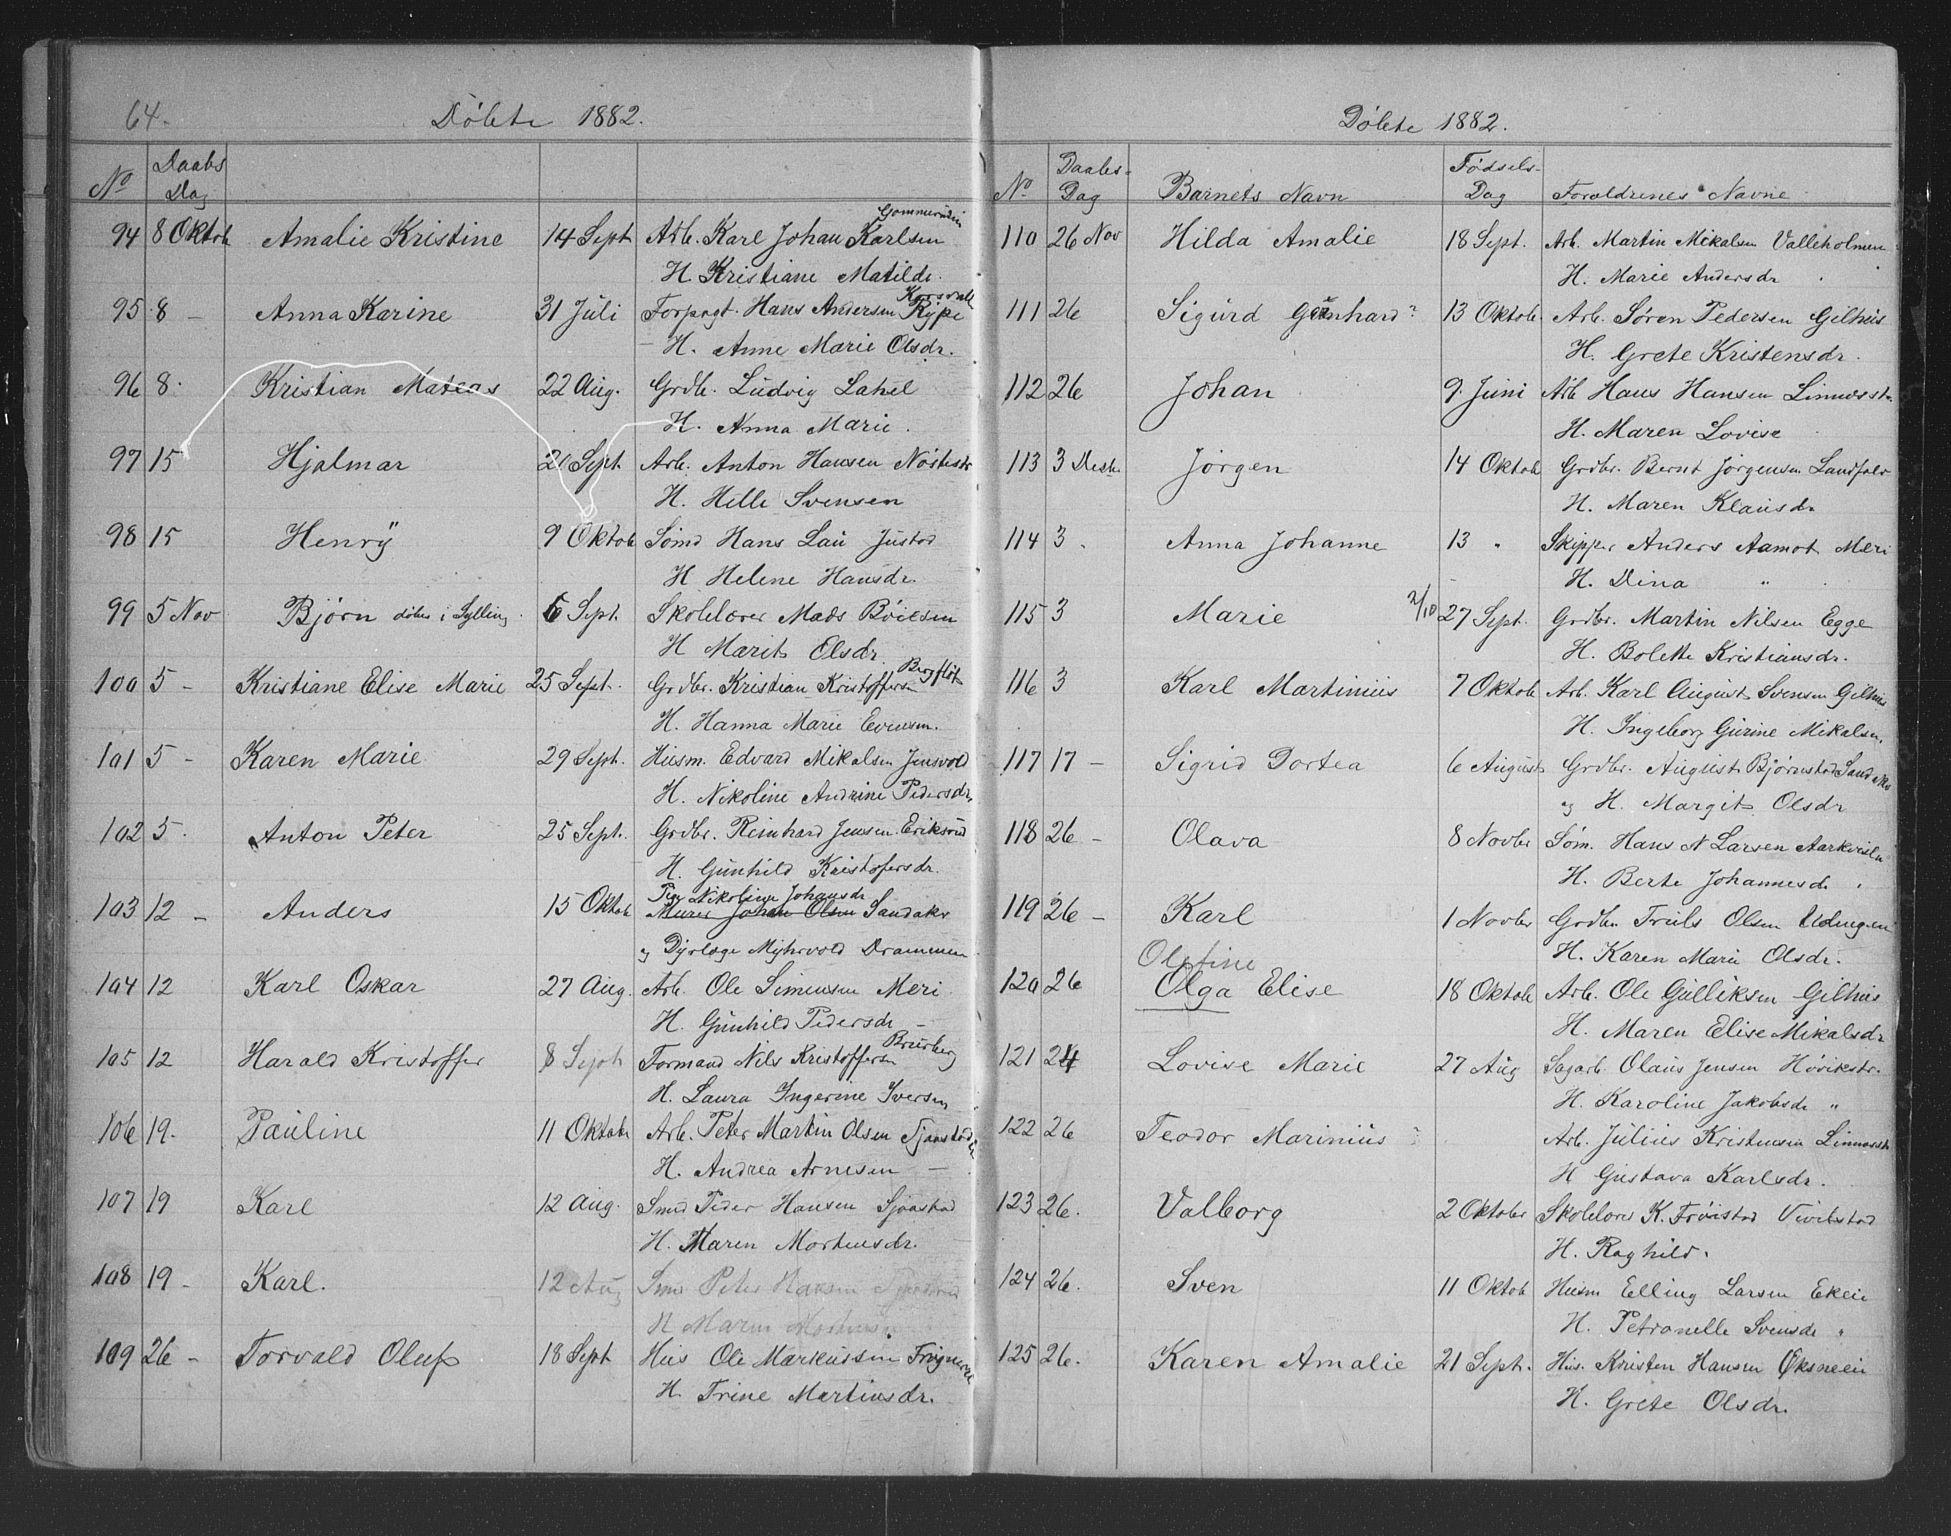 64.
Döbte 1882.
No Daabs Dag
94 8 Oktob Amalie Kristine 14 Sept Arb. Karl Johan Karlsen
H. Kristiane Matilde.
95 8 – Anna Karine 31 Juli Forpagt. Hans Andersen Rype
H. Anne Marie Olsdr.
96 8. Kristian Mateas 22 Aug. Grdb. Ludvig Lahel
H. Anna Marie.
97 15 Hjalmar 20 Sept. Arb. Anton Hansen Nöstestr
H. Helle Svensen
98 15 Henrÿ 9 Oktob Sömd Hans Lau Justad
H Helene Hansdr.
99 5 Nov Björn döbt i Sylling 6 Sept. Skolelærer Mads Böiesen
H Marit Elsdr.
100 5 – Kristiane Elise Marie 25 Sept. Grdbr. Kristian Kristoffersen Bergflöt
H. Hanna Marie Evensen.
101 5 – Karen Marie 29 Sept. Husm. Edvard Mikalsen Jensvold
H. Nikoline Andrine Pedersdr.
102 5. Anton Peter 25 Sept. Grdbr. Reinhard Jensen Eriksrud
H. Gunhild Kristofersdr.
103 12 – Anders 15 Oktob Pig Nikoline Johansdr
Murer Johan Olsen Sandaker
og Dyrlæge Myhrvold Drammen
104 12 Karl Oskar 27 Aug. Arb. Ole Simensen Meri
H. Gunhild Pedersdr –
105 12 Harald Kristoffer 8 Sept Formand Nils Kristoffersen Bruberg
H. Laura Ingerine Iversen
106 19. Pauline 11 Oktob Arb. Peter Martin Olsen
H. Andrea Arnesen –
107 19 Karl 12 Aug. Smed Peder Hansen Sjaastad
H. Maren Mortensdr.
108 19 – Karl. 12 Aug Smed Peter Hansen
H Maren
109 26 – Torvald Oluf 18 Sept Hus Ole Markussen
H. Trine Martinsdr.
Döbte 1882.
No Daabs-Dag Barnets Navn Fødsels-Dag Forældrenes Navne
110 26 Nov Hilda Amalie 18 Sept. Arb. Martin Mikalsen Valleholmen
H. Marie Andersdr
111 26 Sigurd 13 Oktob. Arb. Søren Pedersen Gilhus
H. Grete Kristensdr.
112 26 Johan 9. Juni Arb Hans Hansen Linnesstr
H. Maren Lovise
113 3 Desb. Jørgen 14 Oktob Grdbr. Bernt Jørgensen Landfald
H. Maren Klausdr
114 3. Anna Johanne 13 " Skipper Anders Aamot Meri
H. Dina "
115 3 Marie 2/10 27 Sept. Grdbr. Martin Nilsen Egge
H. Bolette Kristiansdr.
116 3 Karl Martinius 7 Oktob Arb. Karl August Svensen Gilhus
H. Ingeborg Gurine Mikalsen.
117 17 – Sigrid Dortea 6 August Grdbr. August Björnstad Sandaker
og H. Margit Olsdr
118 26 – Olava 8 Novbr Söm. Hans N Larsen Aarkvisla
H. Berte Johannesd.
119 26 – Karl 1 Novbr Grdbr. Truls Olsen Udengen
H. Karen Marie Olsdr.
Olefine
120 26 Olga Elise 18 Oktob Arb. Ole Gulliksen Gilhus
H. Maren Elise Mikalsdr
121 24 Lovise Marie 27 Aug Sagarb. Olaus Jensen Hövikstr.
H. Karoline Jakobsdr "
122 26 Teodor Marinius Arb. Julius Kristensen Linnesstr
H Gustava Karlsdr.
123 26. Valborg 2 Oktober Skolelærer K. Fröistad Vivelstad
H. Raghild.
124 26. Sven 11 Oktob Husm Elling Larsen Ekeie
H. Petronelle Svensdr "
125 26. Karen Amalie 21 Sept. Hus. Kristen Hansen Öksneeie
H. Grete Olsdr.